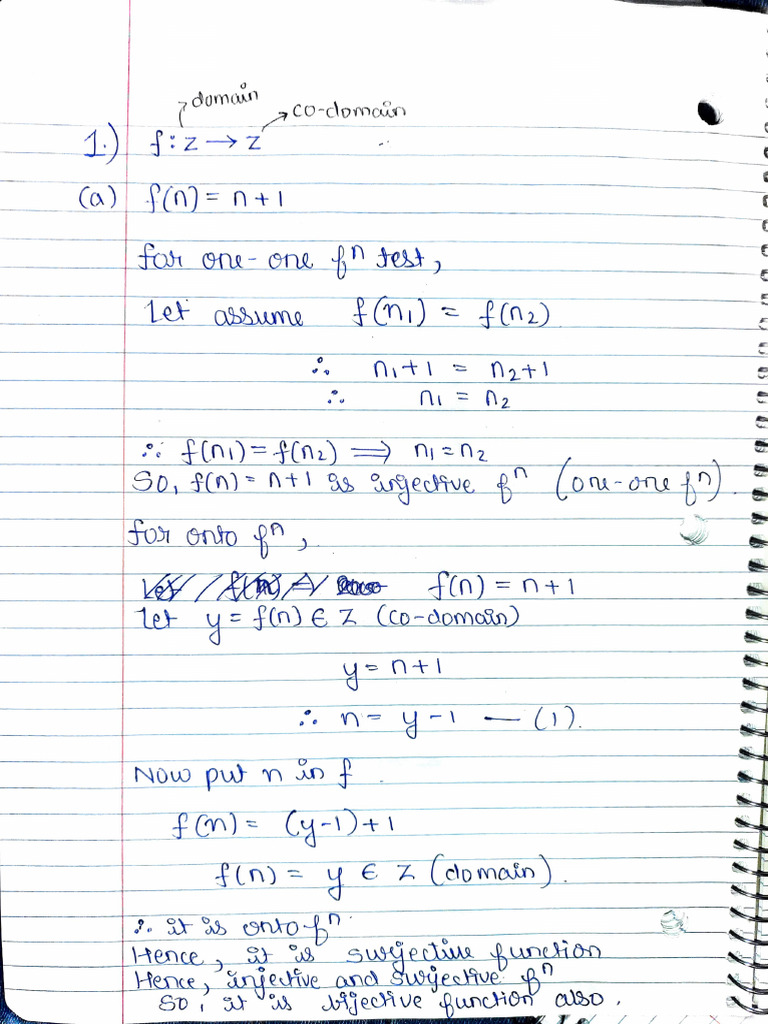 domain
co-domain
1.) f : z → z
(a) f(n) = n + 1
for one-one fⁿ test,
Let assume f(n₁) = f(n₂)
∴ n₁+1 = n₂+1
∴ n₁ = n₂
∴ f(n₁) = f(n₂) ⟹ n₁ = n₂
So, f(n) = n+1 is injective fⁿ (one-one fⁿ).
for onto fⁿ,
f(n) = n+1
Let y = f(n) ∈ Z (co-domain)
y = n+1
∴ n = y-1 — (1).
Now put n in f
f(n) = (y-1)+1
f(n) = y ∈ Z (domain).
∴ it is onto fⁿ.
Hence, it is surjective function
Hence, injective and surjective fⁿ
So, it is bijective function also.